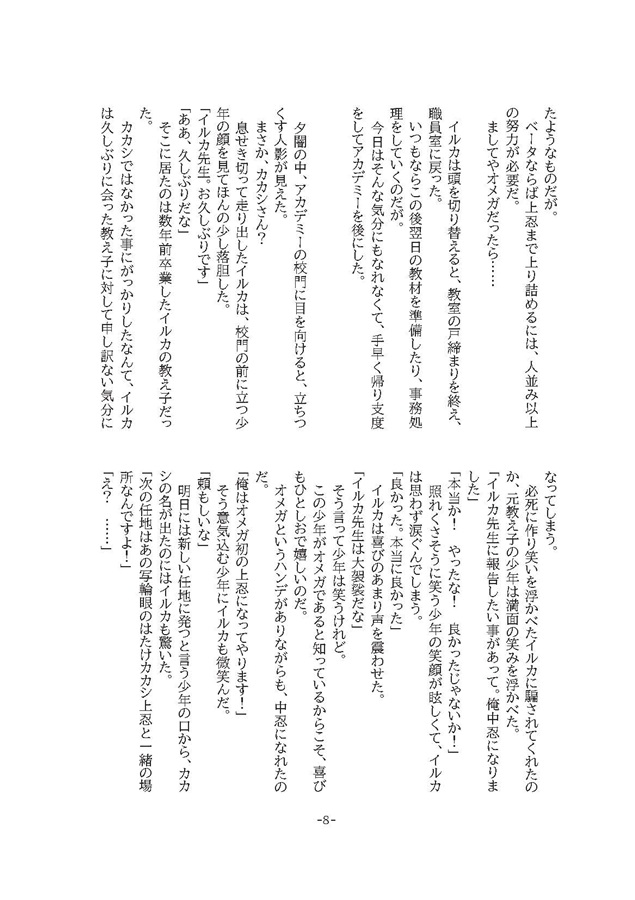 たようなものだが。
ベータならば上忍まで上り詰めるには、人並み以上
の努力が必要だ。
ましてやオメガだったら……
イルカは頭を切り替えると、教室の戸締まりを終え、
職員室に戻った。
いつもならこの後翌日の教材を準備したり、事務処
理をしていくのだが。
今日はそんな気分にもなれなくて、手早く帰り支度
をしてアカデミーを後にした。
夕闇の中、アカデミーの校門に目を向けると、立ちつ
くす人影が見えた。
まさか、カカシさん?
息せき切って走り出したイルカは、校門の前に立つ少
年の顔を見てほんの少し落胆した。
「イルカ先生。お久しぶりです」
「ああ、久しぶりだな」
そこに居たのは数年前卒業したイルカの教え子だっ
た。
カカシではなかった事にがっかりしたなんて、イルカ
は久しぶりに会った教え子に対して申し訳ない気分に
なってしまう。
必死に作り笑いを浮かべたイルカに騙されてくれたの
か、元教え子の少年は満面の笑みを浮かべた。
「イルカ先生に報告したい事があって。俺中忍になりま
した」
「本当か! やったな! 良かったじゃないか!」
照れくさそうに笑う少年の笑顔が眩しくて、イルカ
は思わず涙ぐんでしまう。
「良かった。本当に良かった」
イルカは喜びのあまり声を震わせた。
「イルカ先生は大袈裟だな」
そう言って少年は笑うけれど。
この少年がオメガであると知っているからこそ、喜び
もひとしおで嬉しいのだ。
オメガというハンデがありながらも、中忍になれたの
だ。
「俺はオメガ初の上忍になってやります!」
そう意気込む少年にイルカも微笑んだ。
「頼もしいな」
明日には新しい任地に発つと言う少年の口から、カカ
シの名が出たのにはイルカも驚いた。
「次の任地はあの写輪眼のはたけカカシ上忍と一緒の場
所なんですよ!」
「え? ……」
-8-